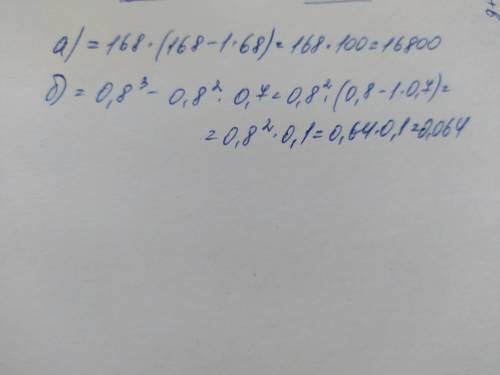 а) = 168·(168-1·68) = 168·100 = 16800
б) = 0,8³ - 0,8²·0,7 = 0,8²·(0,8-1·0,7) =
= 0,8²·0,1 = 0,64·0,1 = 0,064